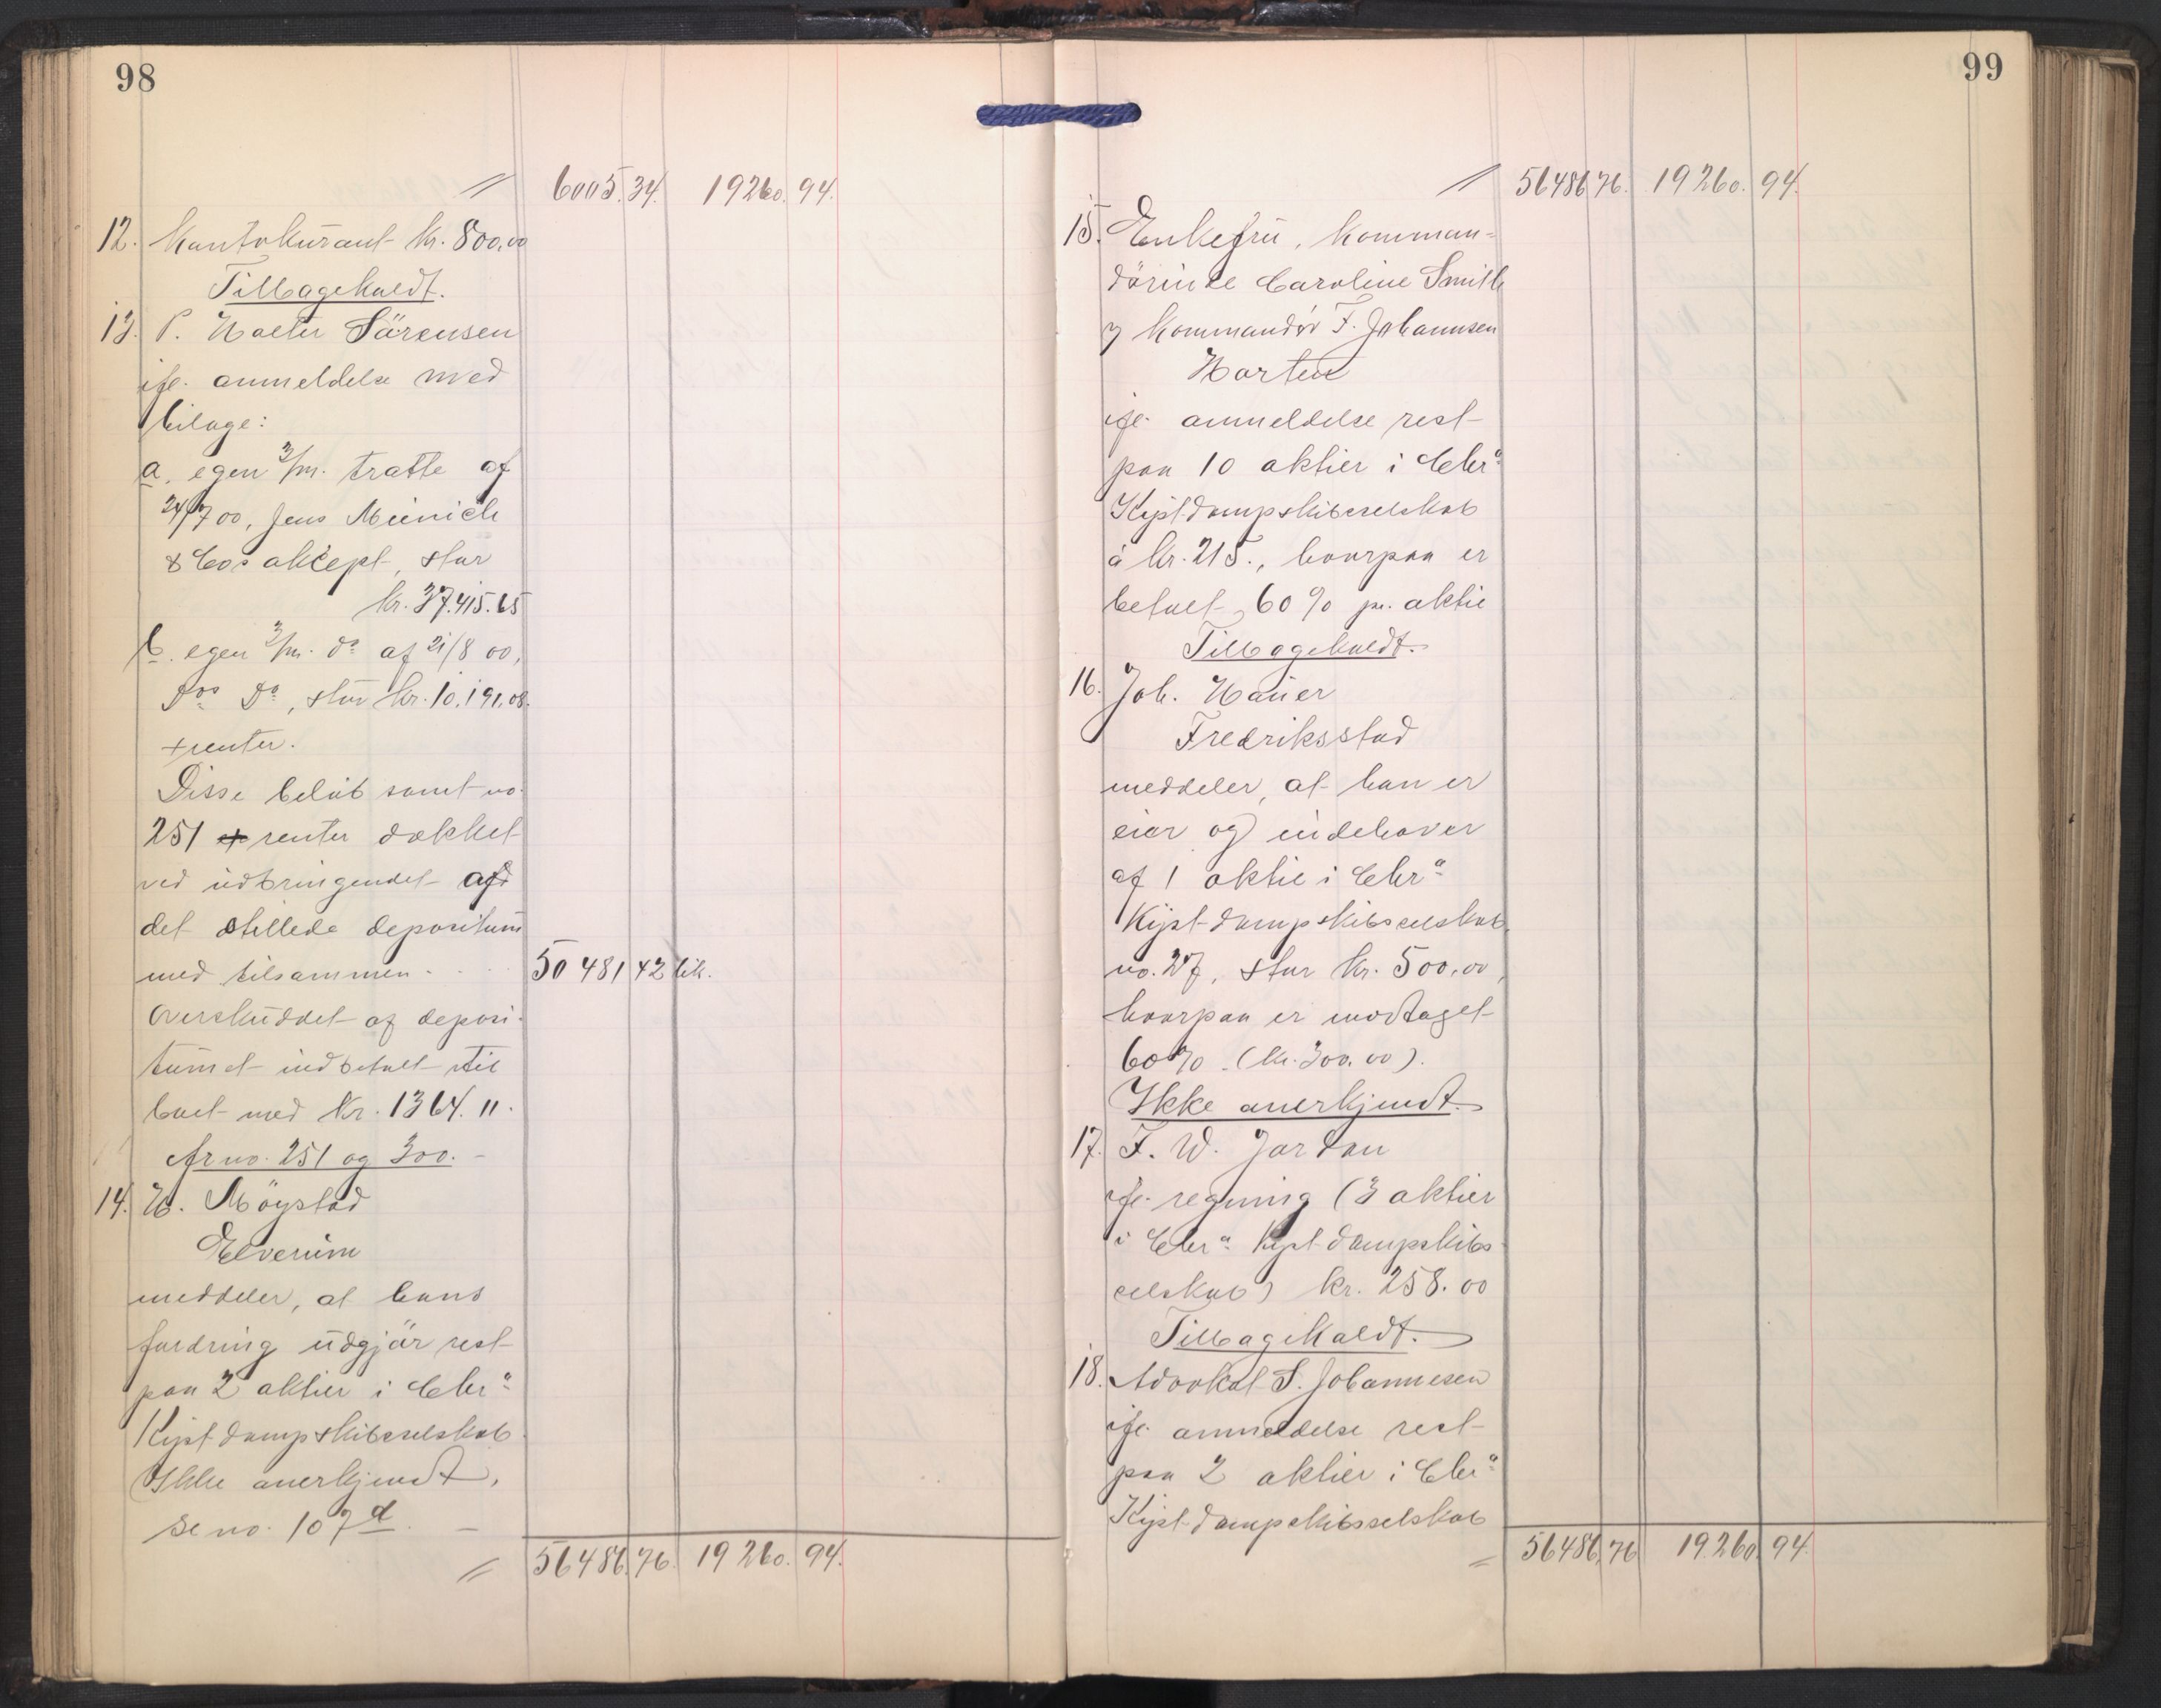 98
〃 6005.34. 19260.94.
12. Kontokurant kr. 800.00
Tilbagekaldt.
13. P. Holter Sörensen
ifl. anmeldelse med
bilage:
a. egen 3/m. tratte af
24/7 00, Jens Münich
& Cos aksept, stor
kr. 37.415.65
b. egen 3/m. do af 21/8 00,
dos do, stor kr. 10.191.08.
+ renter.
Disse beløb samt no.
251 + renter dækket
ved udbringendet af
det stillede depositum
med tilsammen . . . 50 481 42 lik.
Overskuddet af deposi-
tumet indbetalt til
boet med kr. 1364.11.
cfr no. 251 og 300. –
14. H. Möystad
Elverum
meddeler, at hans
fordring udgjör rest
paa 2 aktier i Chra
Kystdampskibsselskab.
Ikke anerkjendt,
se no. 107 d. –
〃 56486.76. 19260.94.
99
〃 56486 76. 19260. 94.
15. Enkefru, Komman-
dörinde Caroline Smith
v/ Kommandör F. Johannsen
Horten
ifl. anmeldelse rest
paa 10 aktier i Chra
Kystdampskibsselskab
à kr. 215., hvorpaa er
betalt 60 % pr. aktie
Tilbagekaldt.
16. Joh. Hauer
Fredriksstad
meddeler, at han er
eier og indehaver
af 1 aktie i Chra
Kystdampskibsselskab,
no. 27, stor kr. 500.00,
hvorpaa er modtaget
60 % (kr. 300.00).
Ikke anerkjendt.
17. F. W. Jordan
ifl. regning (3 aktier
i Chra Kystdampskibs-
selskab) kr. 258.00
Tilbagekaldt.
18. Advokat S. Johannesen
ifl. anmeldelse rest
paa 2 aktier i Chra
Kystdampskibsselskab
〃 56486.76 19.260.94.